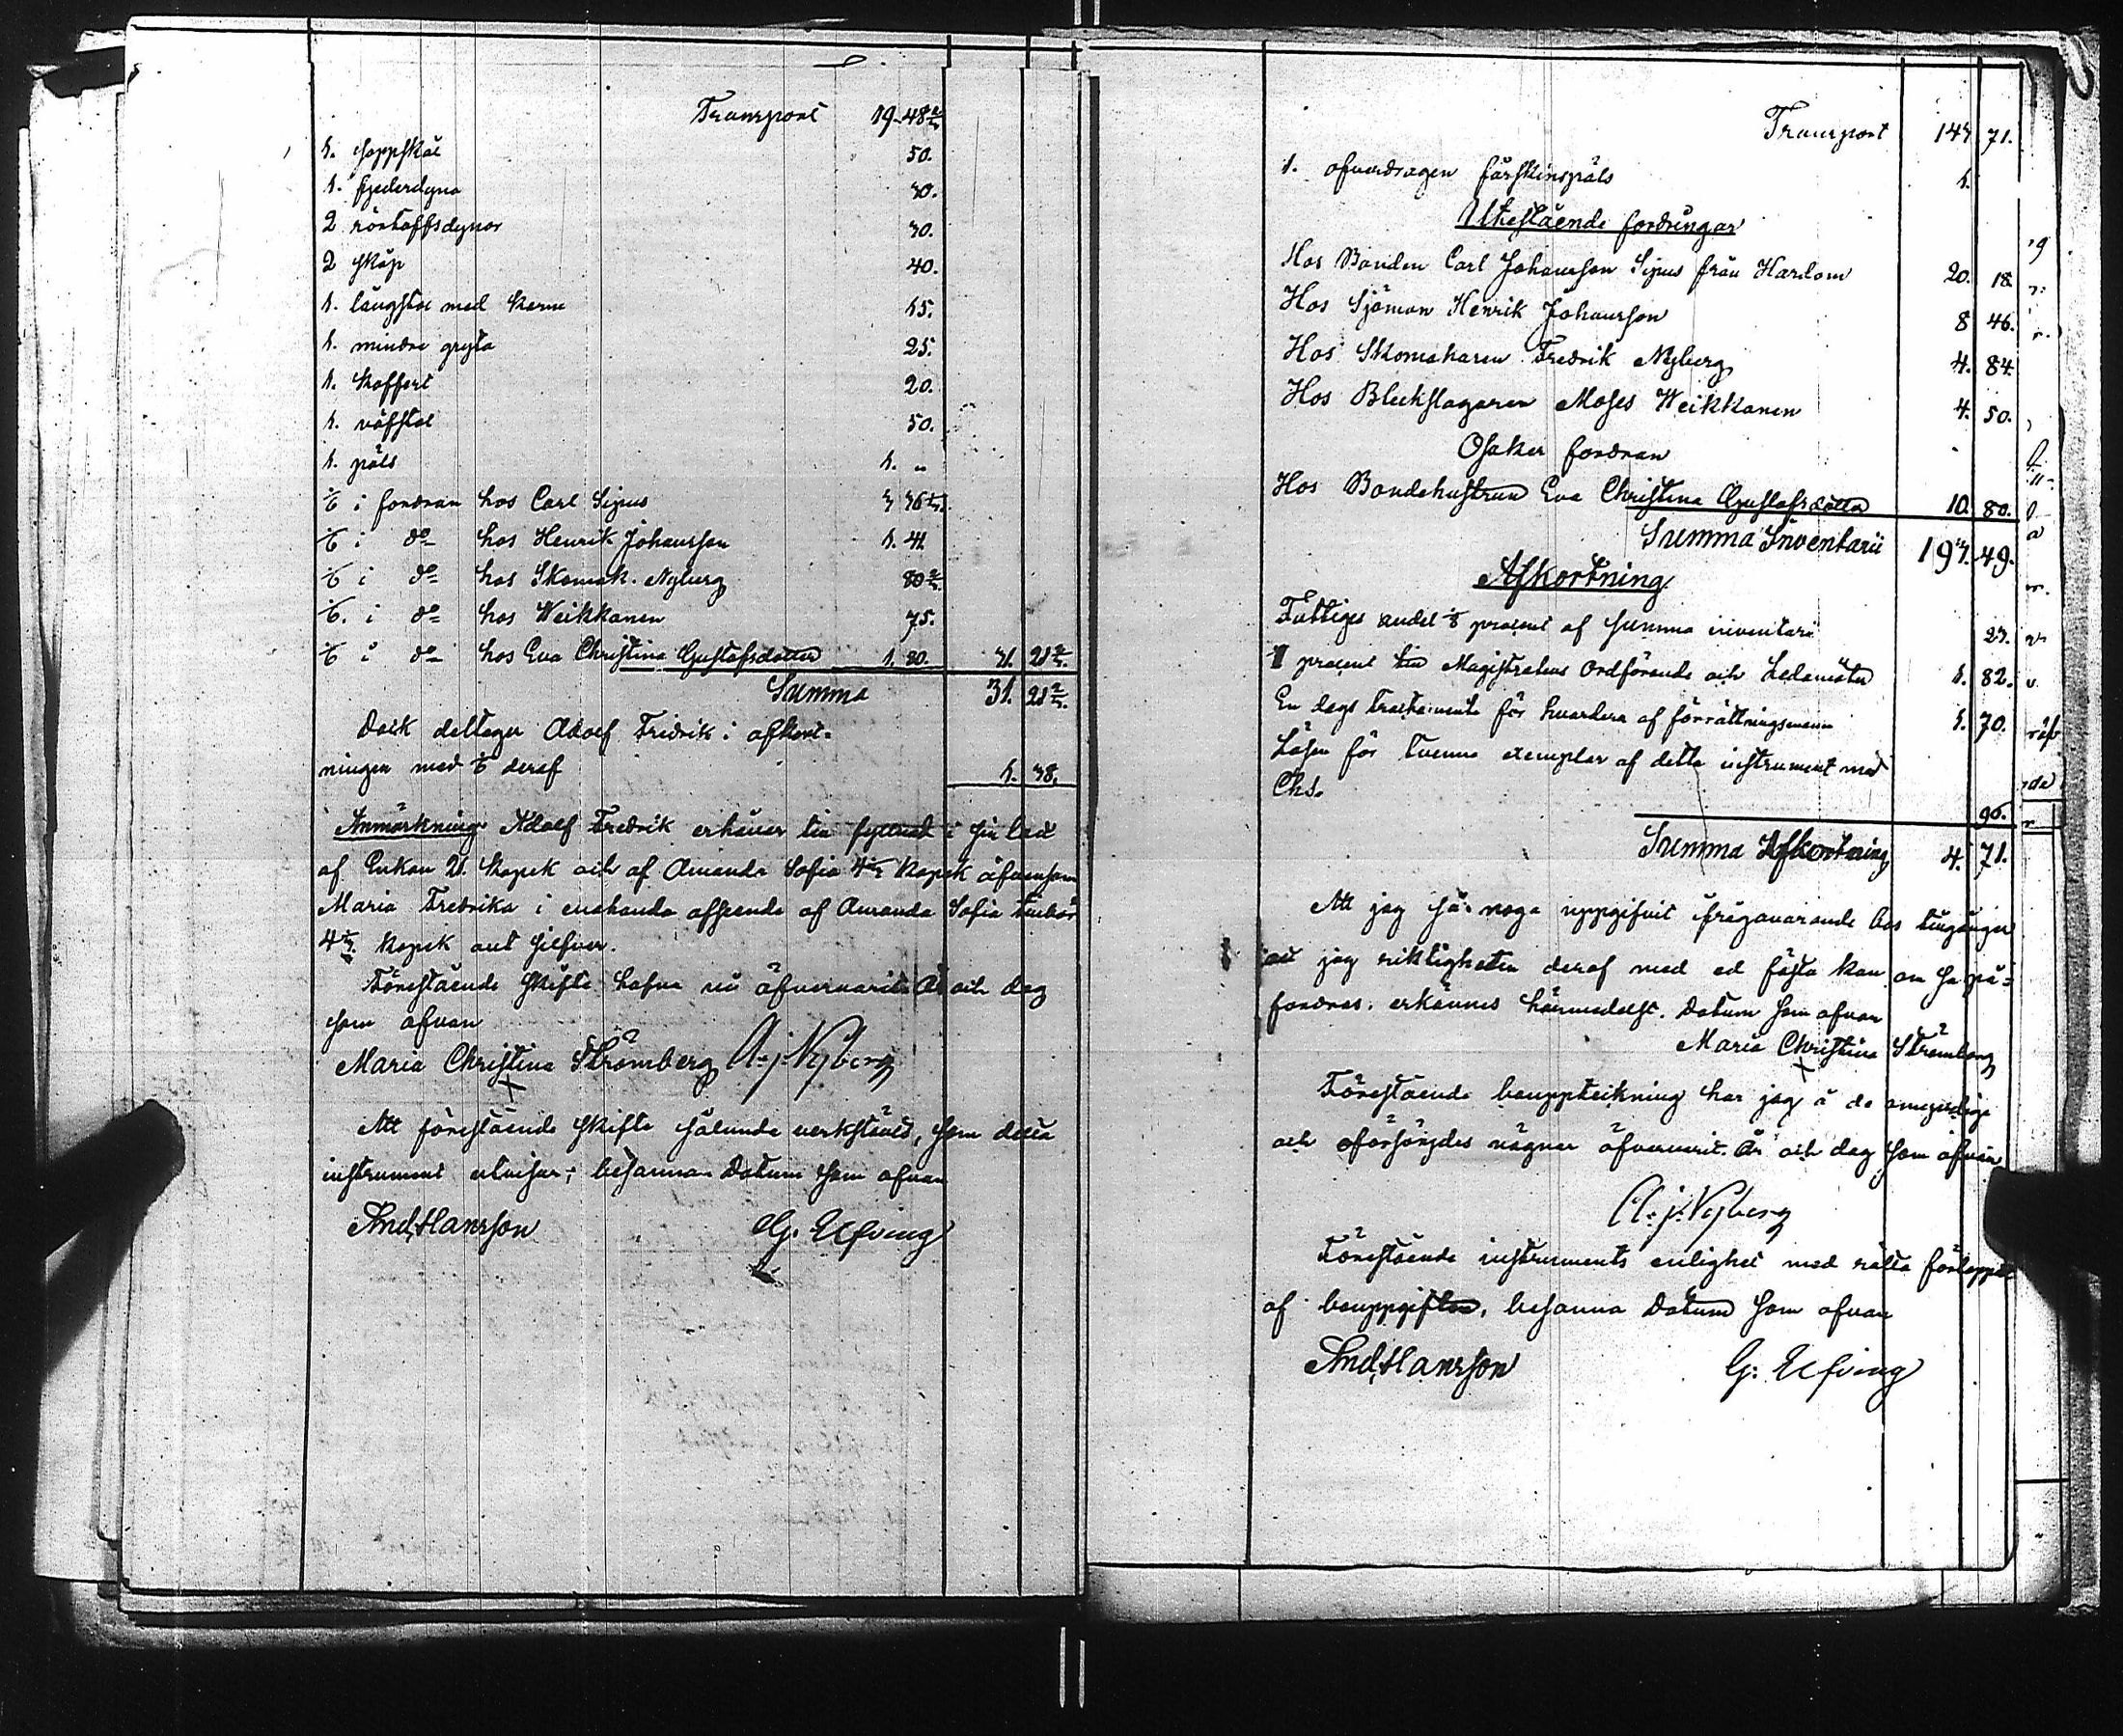 Transport 19. 48 2/3
1. soppskål 50.
1. fjederdyna 30.
2 röstoffsdynor 30.
2 skåp 40.
1. långstol med karm 15.
1. mindre gryta 25.
1. Koffert 20.
1. väfstol 50.
1. päls 1. „
1/6 i fordran hos Carl Sipus 3 36 1/3.
1/6 i do hos Henrik Johansson 1. 41.
1/6 i do hos Skomak. Nyberg 80 2/3.
1/6. i do hos Weikkanen 75.
1/6 i do hos Eva Christina Gustafsdotter 1. 80. 31. 21 2/3.
Summa 31. 21 2/3.
Dock deltager Adolf Fredrik i afkort-
ningen med 1/6 deraf 1. 38.
Anmärkning Adolf Fredrik erhåller till fyllnad i sin lott
af Enkan 21. Kopek och af Amanda Sofia 4 1/3 Kopek äfvensom
Maria Fredrika i enahanda afseende af Amanda Sofia
4 1/3. Kopek allt silfver.
Förestående skifte hafva vi öfvervarit År och dag
som ofvan
Maria Christina Strömberg A. j. Nyberg
X
Att förestående skifte sålunda verkstälts, som detta
instrument utvisar; besanna Datum som ofvan
And. Hansson G. Elfving
Transport 147 71.
1. ofverdragen fårskinspäls 1.
Utestående fordringar
Hos Bonden Carl Johansson Sipus från Hardom 20. 18
Hos Sjöman Henrik Johansson 8 46.
Hos Skomakaren Fredrik Nyberg 4. 84
Hos Bleckslagaren Moses Weikkanen 4. 50.
Osäker fordran
Hos Bondehustrun Eva Christina Gustafsdotter 10. 80.
Summa Inventarii 197. 49.
Afkortning
Fattiges andel 1/8 procent af summa inventarii 23.
1 procent till Magistratens Ordförande och Ledamöter 1. 82.
En dags tractamente för hvardera af förrättningsmänn 1. 70.
Lösen för tvenne exemplar af detta instrument med
Chs. 96.
Summa Afkortning 4. 71.
Att jag så noga uppgifvit ifrågavarande bos tillgångar
att jag riktigheten deraf med ed fästa kan om så på-
fordras, erkännes härmedelst. Datum som ofvan
Maria Christina Strömberg
X
Förestående bouppteckning har jag å de omyndige
och oförsörjdes vägnar öfvervarit. År och dag som ofvan
A. j. Nyberg
Förestående instruments enlighet med rätta förloppet
af bouppgiften, besanna Datum som ofvan
And. Hansson G. Elfving